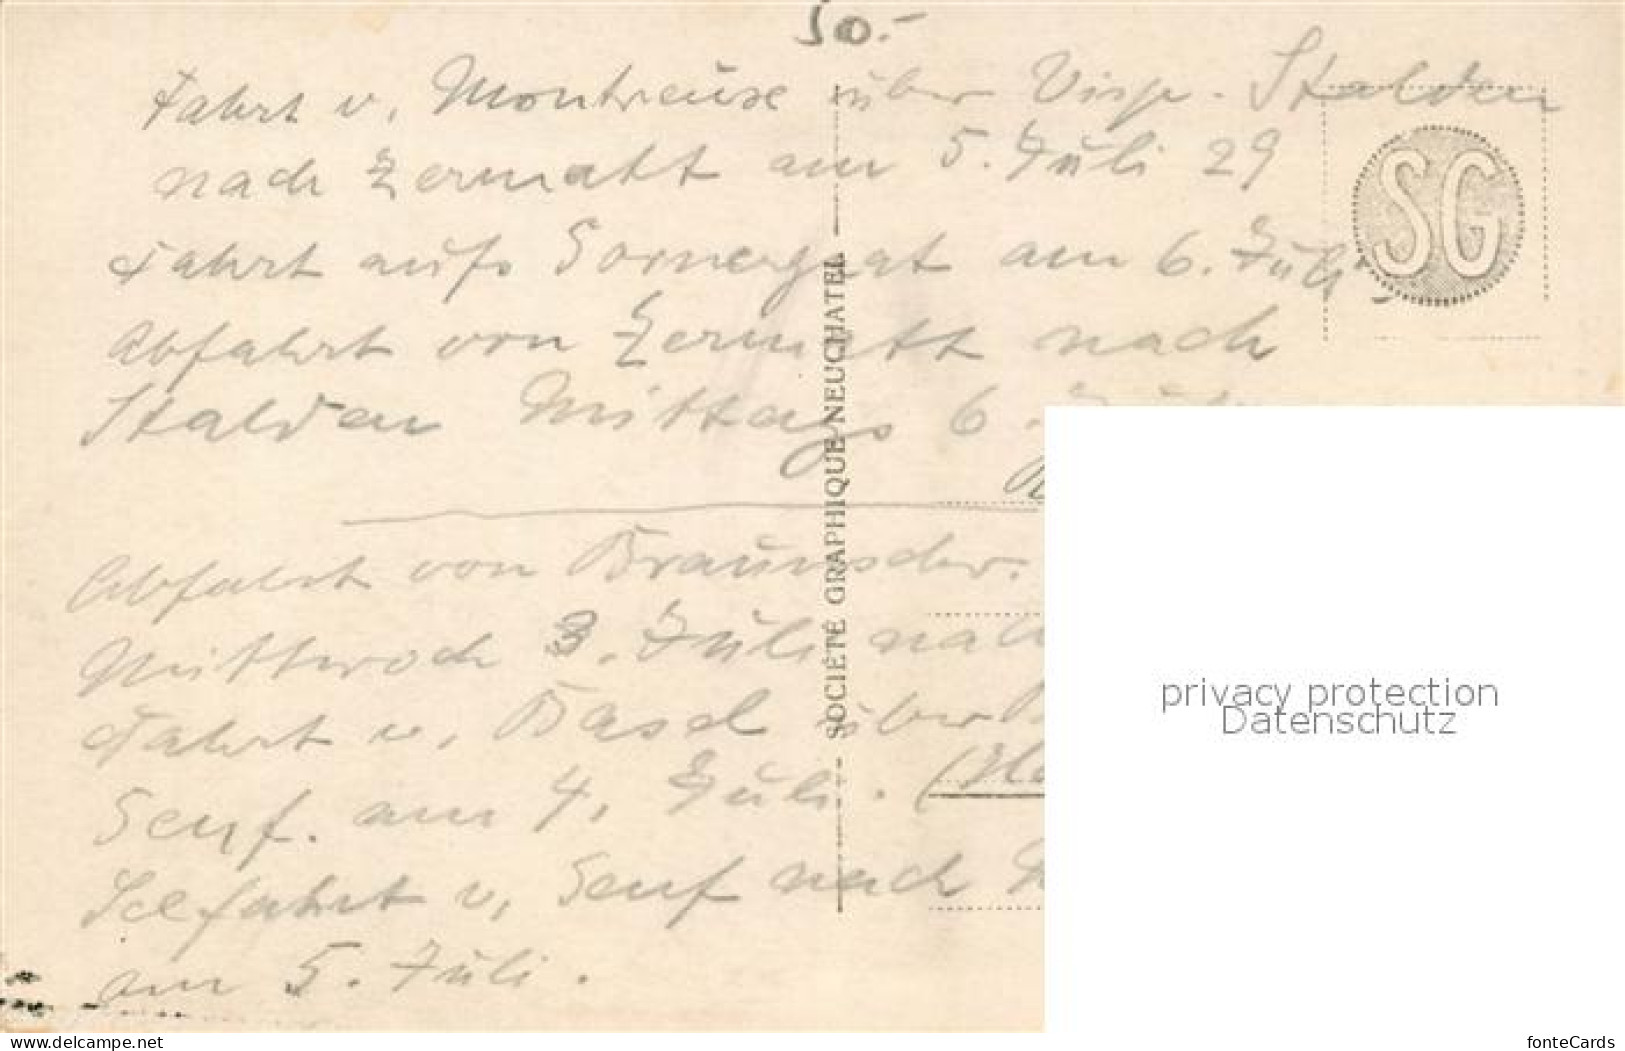 50.-
Fahrt v. Montreuse über Visp - Stalden
nach Zermatt am 5. Juli 29
Fahrt aufs Gornergrat am 6. Juli
Abfahrt von Zermatt nach
Stalden Mittags 6.
Abfahrt von Braunschw.
Mittwoch 3. Juli nach
Fahrt v. Basel über
Genf. am 4. Juli. (
Seefahrt v. Genf nach
am 5. Juli.
SOCIÉTÉ GRAPHIQUE NEUCHATEL
SG
privacy protection
Datenschutz
www.delcampe.net
fonteCards